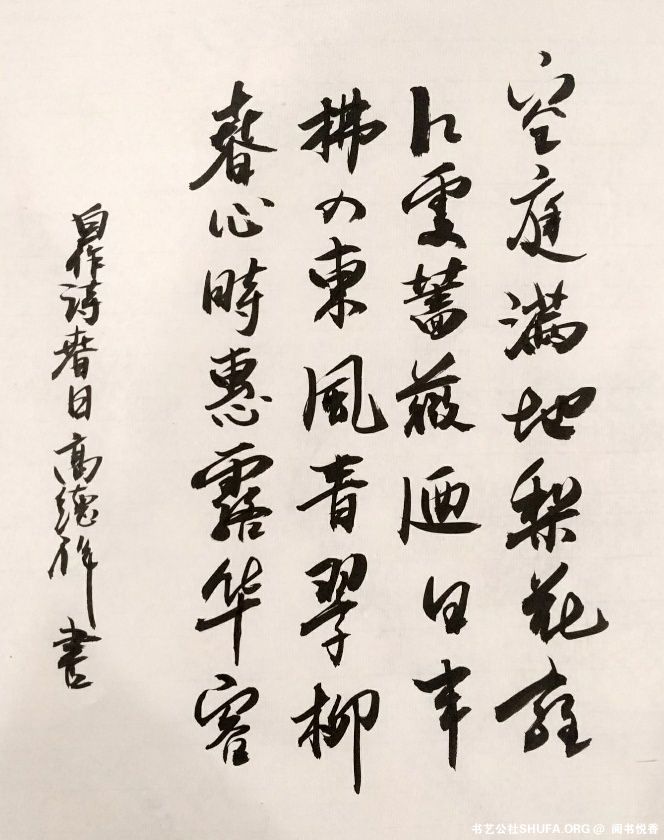 空庭滿地梨花
雯薔薇迺日丰
拂東風青翠柳
春心時惠露华容
自作詩春日高德祥書
书艺公社SHUFA.ORG @ 闻书悦香